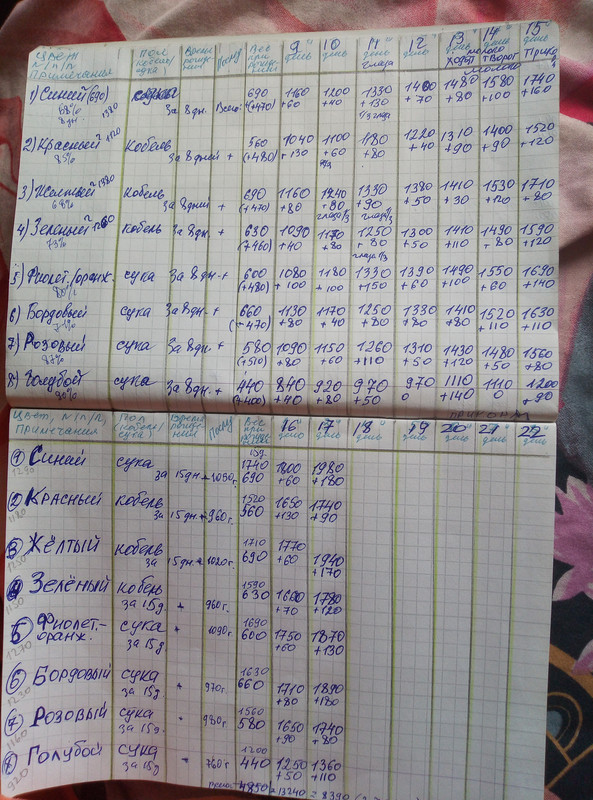 Цвет, Пол Время Подш Вес 9 10 11 12 13 14 15
n/n/n кобель/ рожде- при день день день день день день день
Примечания сука ния рожде- глаза молоко творог Прик
нии
1) Синий (690) сука Всего: 690 1160 1200 1330 1400 1480 1580 1740
68% 1380 за 8 дн. (+470) +60 +40 +130 +70 +80 +100 +160
8 дн. 1/3 глаза
2) Красный 1120 кобель 560 1040 1100 1180 1220 1310 1400 1520
85% за 8 дней + (+480) +130 +60 +80 +40 +90 +90 +120
3) Жёлтый 1380 кобель 690 1160 1240 1330 1380 1410 1530 1710
68% за 8 дней + (+470) +80 +80 +90 +50 +30 +120 +80
глаза 1/3 глаза 1/3
4) Зелёный 1260 кобель за 8 дн. + 630 1090 1170 1250 1300 1410 1490 1590
73% (+460) +40 +80 +80 +50 +110 +80 +120
глаза 1/3
5) Фиолет./оранж. сука за 8 дн. + 600 1080 1180 1330 1390 1490 1550 1690
80% (+480) +100 +100 +150 +60 +100 +60 +140
6) Бордовый сука за 8 дн. + 660 1130 1170 1250 1330 1410 1520 1630
71% (+470) +80 +40 +80 +80 +80 +110 +110
7) Розовый сука за 8 дн + 580 1090 1150 1260 1310 1430 1480 1560
87% (+510) +80 +60 +110 +50 +120 +50 +80
8) Голубой сука за 8 дн. + 440 840 920 970 970 1110 1110 1200
90% (+400) +40 +80 +50 0 +140 0 +90
прикорм
Цвет, n/n/n, Пол Время Подш Вес 16 17 18 19 20 21 22
Примечания (кобель/ рожде- при день день день день день день день
сука) ния
15д.
1 Синий сука 1740 1800 1980
1290 за 15 дн. +1050г. 690 +60 +180
2 Красный кобель 1520 1650 1740
1120 за 15 дн. +960г. 560 +130 +90
3 Жёлтый кобель 1710 1770 1940
1250 за 15 дн. +1020г. 690 +60 +170
4 Зелёный кобель 1590 1660 1780
1130 за 15 д. + 960г. 630 +70 +120
5 Фиолет.- сука + 1090г. 1690 1750 1870
оранж. за 15 д. 600 +60 +130
1270
6 Бордовый сука 1630 1710 1890
1230 за 15 д. + 970г. 660 +80 +180
7 Розовый сука 1560 1650 1740
1160 за 15 д. + 980г. 580 +90 +80
8 Голубой сука 1200 1250 1360
920 за 15 д. + 760г. 440 +50 +110
4850 +13240 = 8390